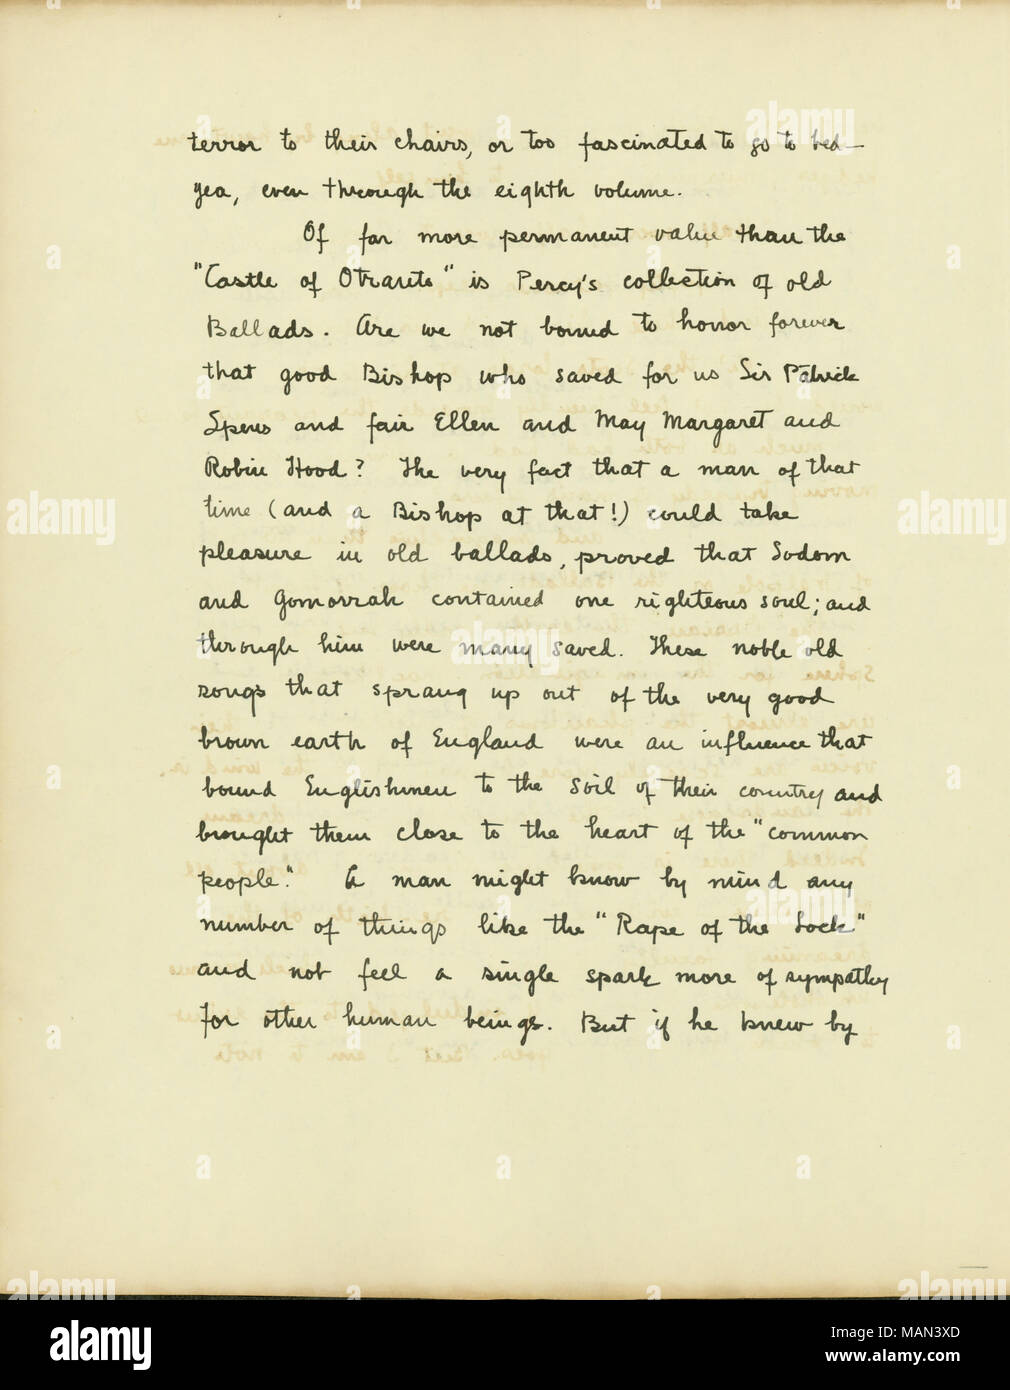 terror to their chairs, or too fascinated to go to bed—
yea, even through the eighth volume.
Of far more permanent value than the
"Castle of Otranto" is Percy's collection of old
Ballads. Are we not bound to honor forever
that good Bishop who saved for us Sir Patrick
Spens and fair Ellen and May Margaret and
Robin Hood? The very fact that a man of that
time (and a Bishop at that!) could take
pleasure in old ballads, proved that Sodom
and Gomorrah contained one righteous soul; and
through him were many saved. These noble old
songs that sprang up out of the very good
brown earth of England were an influence that
bound Englishmen to the soil of their country and
brought them close to the heart of the "common
people." A man might know by mind any
number of things like the "Rape of the Lock"
and not feel a single spark more of sympathy
for other human beings. But if he knew by
alamy
Image ID: MAN3XD
www.alamy.com